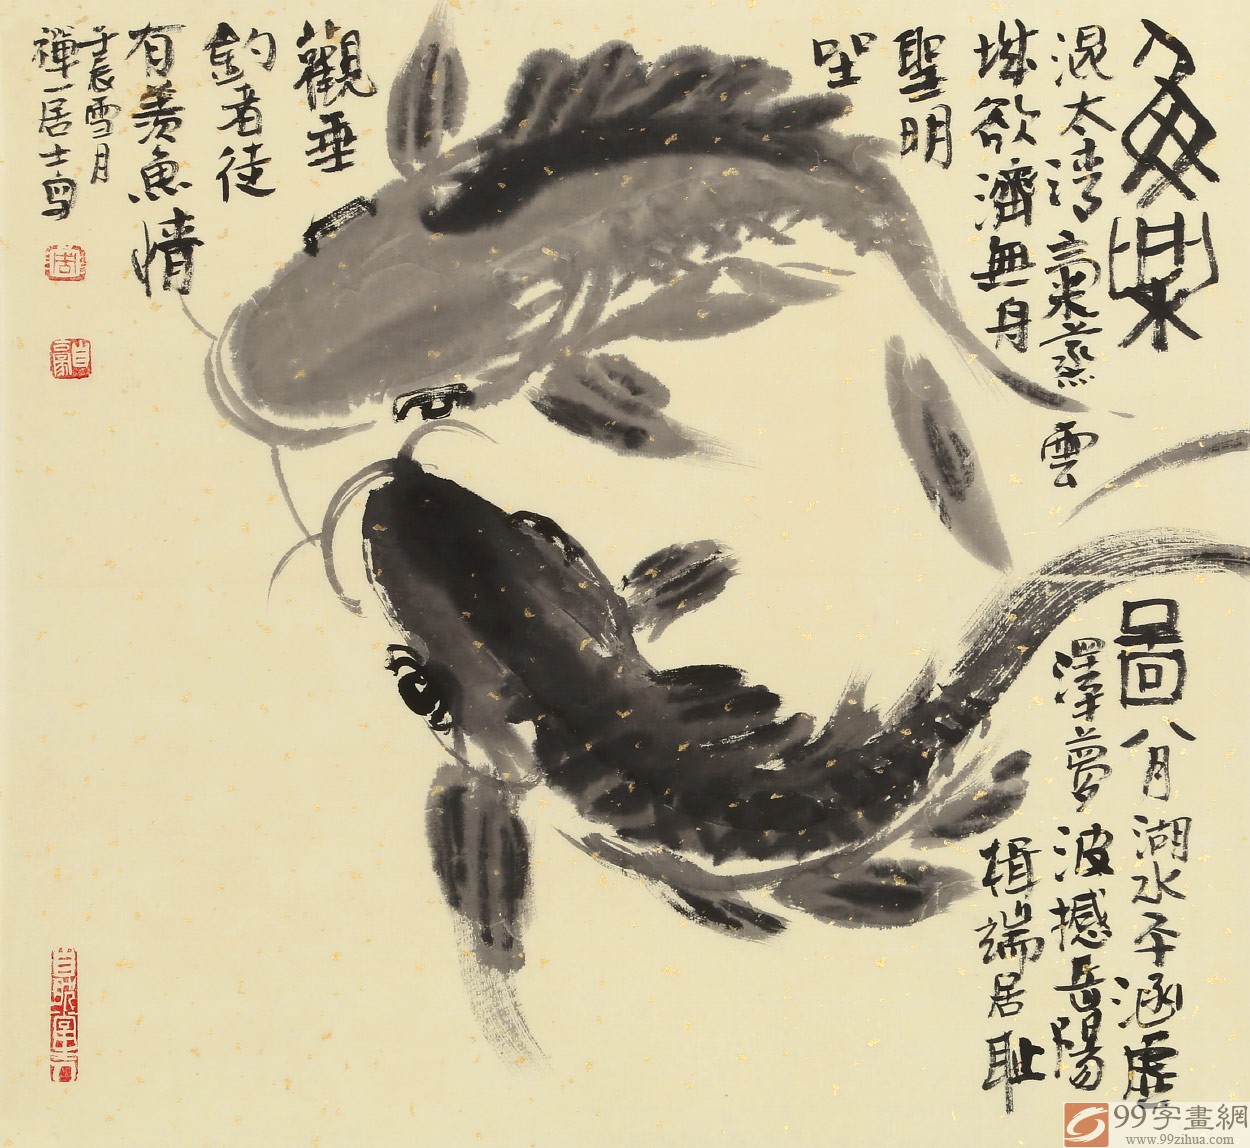 魚樂圖八月湖水平涵虛
混太清氣蒸雲澤夢波撼岳陽
城欲濟無舟楫端居恥
聖明
坐
觀垂
釣者徒
有羨魚情
壬辰雪月
禪一居士写
99字畫網
www.99zihua.com